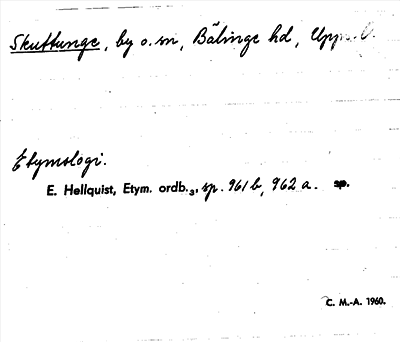 Skuttunge, by o. sn, Bälinge hd, Upps. l.
Etymologi.
E. Hellquist, Etym. ordb.3, sp. 961 b, 962 a. sp.
C. M.-A. 1960.